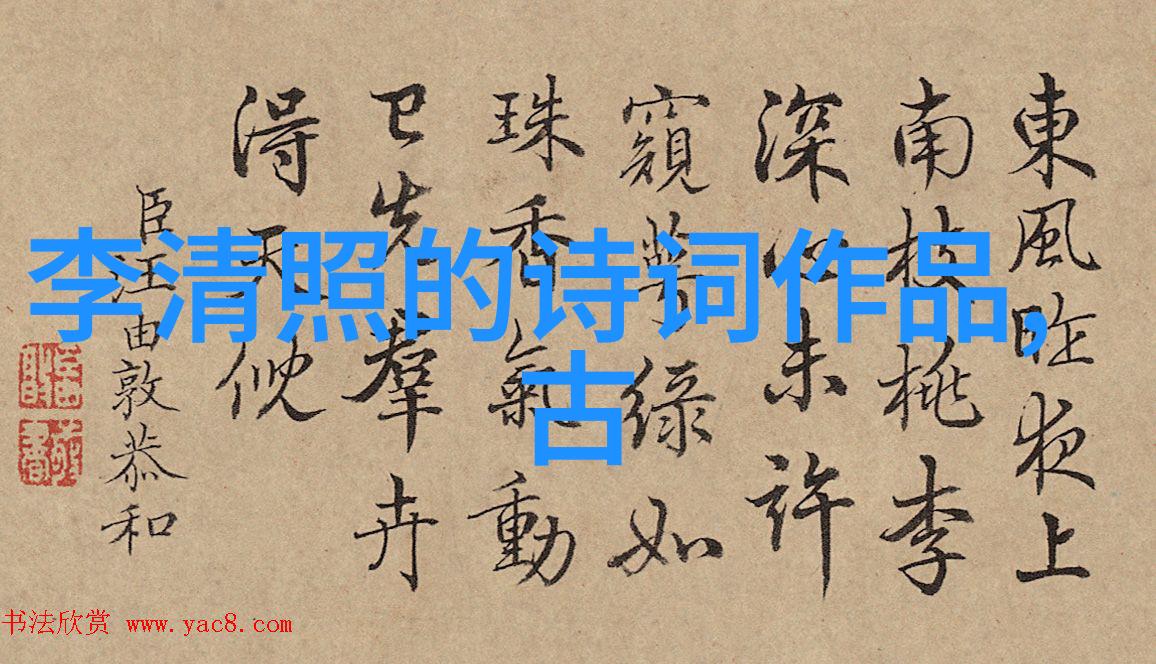 李清照的诗词作品,
古
東風昨夜上
南枝桃李
深心未許
窺萼綠如
珠香氣動
已先羣卉
得天倪
臣汪由敦恭和
书法欣赏 www.yac8.com